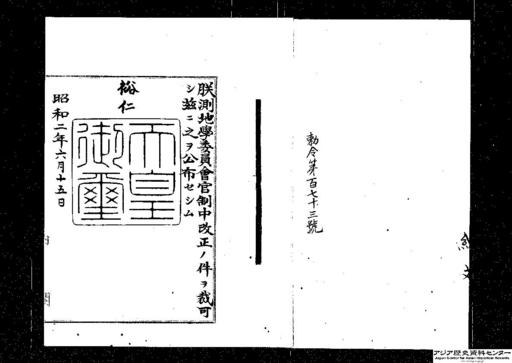 勅令第百七十三號
朕測地學委員會官制中改正ノ件ヲ裁可
シ茲ニ之ヲ公布セシム
裕仁
天皇
御璽
昭和二年六月十五日
内閣
アジア歴史資料センター
Japan Center for Asian Historical Records